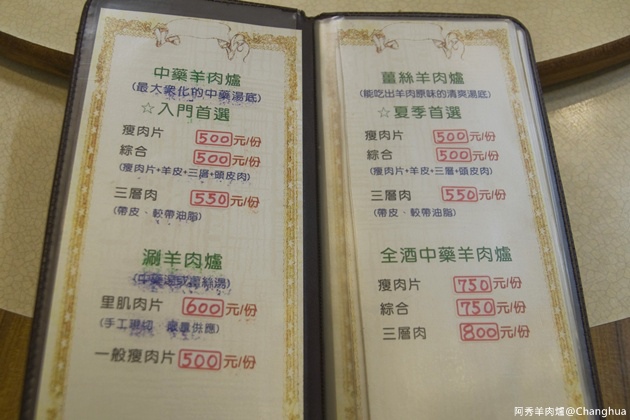 中藥羊肉爐
(最大眾化的中藥湯底)
☆入門首選
瘦肉片 500元/份
綜合 500元/份
(瘦肉片+羊皮+三層+頭皮肉)
三層肉 550元/份
(帶皮、較帶油脂)
涮羊肉爐
(中藥湯或薑絲湯)
里肌肉片 600元/份
(手工現切 限量供應)
一般瘦肉片 500元/份
薑絲羊肉爐
(能吃出羊肉原味的清爽湯底)
☆夏季首選
瘦肉片 500元/份
綜合 500元/份
(瘦肉片+羊皮+三層+頭皮肉)
三層肉 550元/份
(帶皮、較帶油脂)
全酒中藥羊肉爐
瘦肉片 750元/份
綜合 750元/份
三層肉 800元/份
阿秀羊肉爐@Changhua